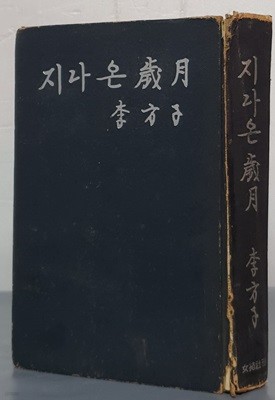 지나온 歲月
李方子
지나온 歲月
李方子